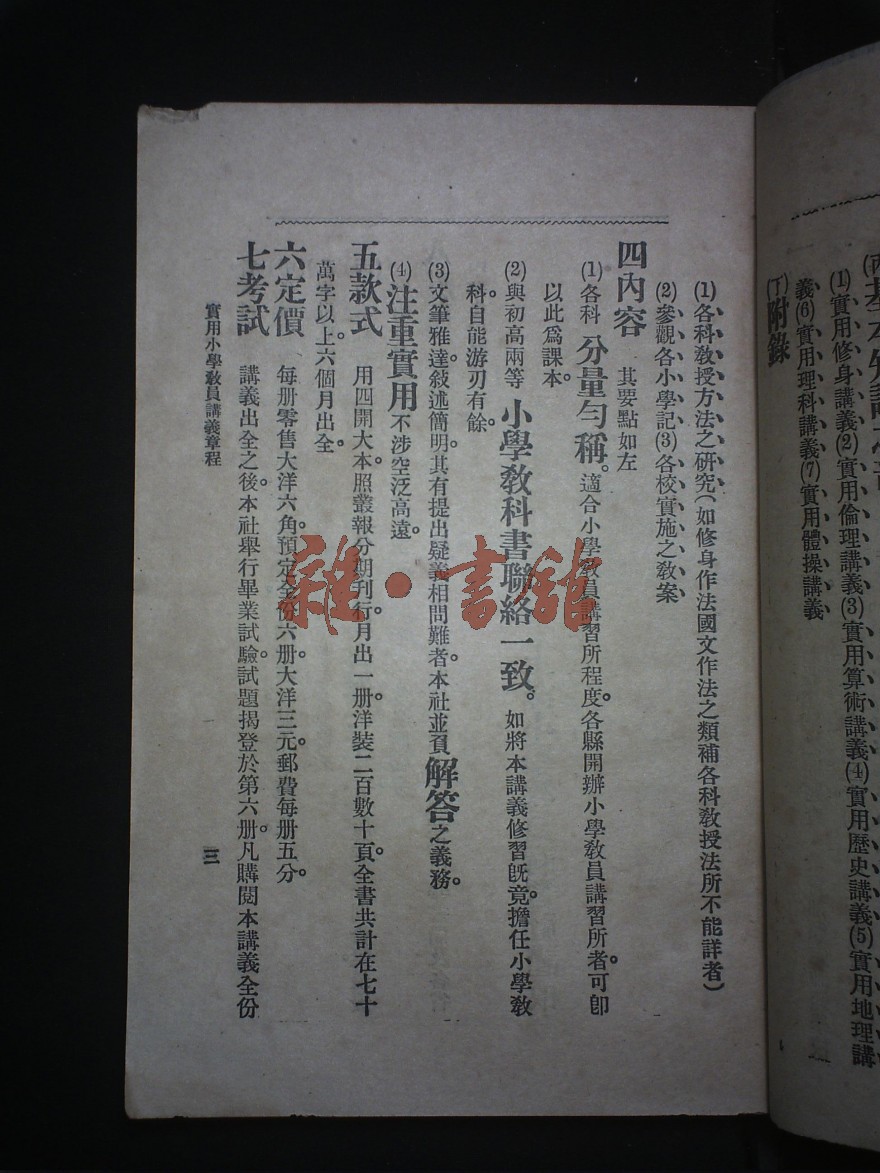 (1)實用修身講義(2)實用倫理講義(3)實用算術講義(4)實用歷史講義(5)實用地理講
義(6)實用理科講義(7)實用體操講義
(丁)附錄
(1)各科教授方法之研究(如修身作法國文作法之類補各科教授法所不能詳者)
(2)參觀各小學記(3)各校實施之教案
四內容 其要點如左
(1)各科分量勻稱。適合小學教員講習所程度。各縣開辦小學教員講習所者。可卽
以此爲課本。
(2)與初高兩等小學教科書聯絡一致。如將本講義修習旣竟。擔任小學教
科。自能游刃有餘。
(3)文筆雅達。敍述簡明。其有提出疑義相問難者。本社並負解答之義務。
(4)注重實用不涉空泛高遠。
五款式 用四開大本。照叢報分期刊行。月出一册。洋裝二百數十頁。全書共計在七十
萬字以上。六個月出全。
六定價 每册零售大洋六角。預定全份六册。大洋三元。郵費每册五分。
七考試 講義出全之後。本社舉行畢業試驗。試題揭登於第六册。凡購閱本講義全份
實用小學教員講義章程
三
雜·書館